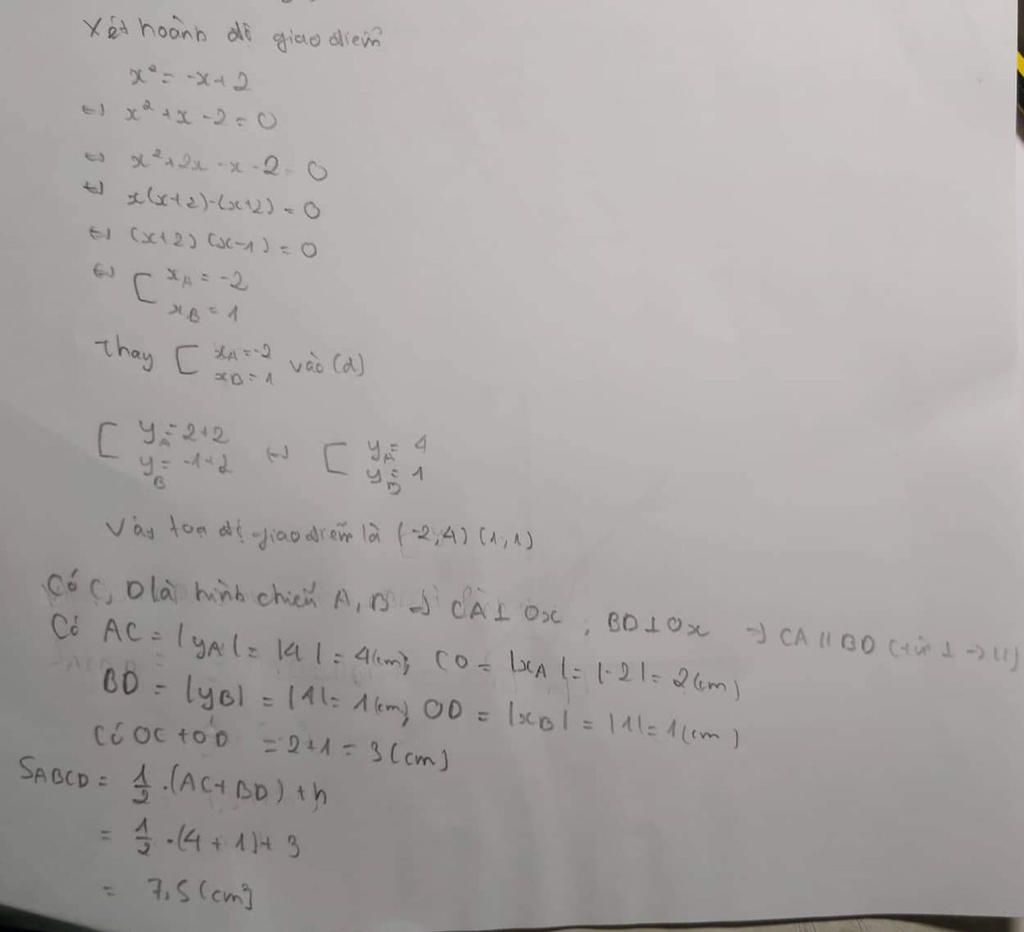 Xét hoành độ giao điểm
x² = -x+2
⇔ x² + x - 2 = 0
⇔ x² + 2x - x - 2 = 0
⇔ x(x+2)-(x+2) = 0
⇔ (x+2) (x-1) = 0
⇔ [ xA = -2
xB = 1
Thay [ xA = -2 vào (d)
xB = 1
[ yA = 2+2 ⇔ [ yA = 4
yB = -1+2 yB = 1
Vậy toạ độ giao điểm là (-2,4) (1,1)
Có C, D là hình chiếu A, B ⇒ CA ⊥ Ox ; BD ⊥ Ox ⇒ CA // BD (từ ⊥ → //)
Có AC = |yA| = |4| = 4(cm); CO = |xA| = |-2| = 2(cm)
BD = |yB| = |1| = 1(cm); OD = |xB| = |1| = 1(cm)
Có OC + OD = 2+1 = 3(cm)
SABCD = 1/2 .(AC+BD) + h
= 1/2 .(4 + 1) + 3
= 7,5 (cm²)